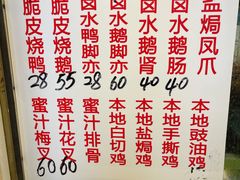 脆皮烧鸭
28
脆皮烧鹅
55
卤水鸭脚亦
28
卤水鹅脚亦
60
卤水鹅肾
40
卤水鹅肠
40
盐焗凤爪
蜜汁梅叉
60
蜜汁花叉
60
蜜汁排骨
本地白切鸡
本地盐焗鸡
本地手撕鸡
本地豉油鸡